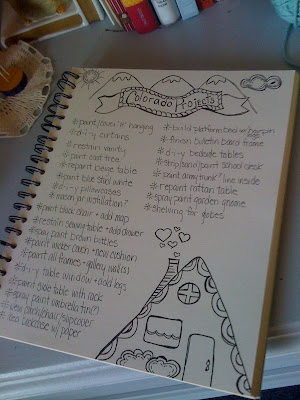 Colorado Projects
*paint/cover "A" hanging
*d-i-y curtains
*restain vanity
*paint coat tree
*repaint bedside table
*paint blue stool white
*d-i-y pillowcases
*mason jar instillation?
*paint black chair + add map
*restain sewing table + add drawer
*spray paint brown bottles
*paint wicker couch + new cushion
*paint all frames + gallery wall(s)
*d-i-y table window + add legs
*paint side table with rack
*spray paint umbrella tin(?)
*new couch/chair/slipcover
*line bookcase w/ paper
*build platform bed w/ hairpin legs
*finish bulletin board frame
*d-i-y bedside tables
*strip/sand/paint school desk
*paint army trunk? line inside
*repaint rattan table
*spray paint garden gnome
*shelving for globes